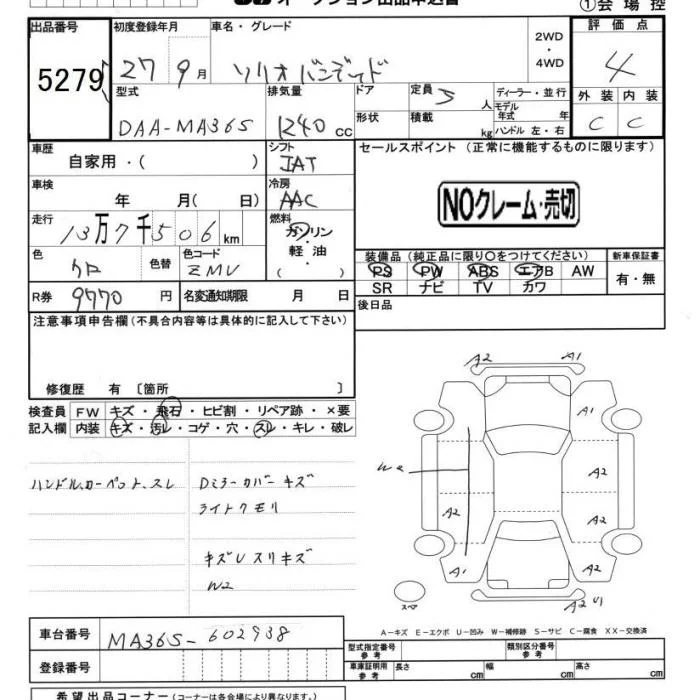 オークション出品申込書
①会場控
出品番号 初度登録年月 車名・グレード 2WD・4WD 評価点
5279 27 9月 ソリオバンデット 4
型式 排気量 ドア 定員 5人 ディーラー・並行 外装 内装
DAA-MA36S 1240cc 形状 積載 kg モデル年式 年 ハンドル 左・右 C C
車歴 シフト セールスポイント (正常に機能するものに限ります)
自家用・( ) IAT
車検 冷房 NOクレーム・売切
年 月( 日) AAC
走行 燃料
13万7千506km ガソリン・軽油・( )
装備品 (純正品に限り〇をつけてください) 新車保証書
色 色替 色コード PS PW ABS エアB AW 有・無
クロ ZMV SR ナビ TV カワ
R券 9770円 名変通知期限 月 日 後日品
注意事項申告欄(不具合内容等は具体的に記入して下さい)
修復歴 有 〔箇所 〕
検査員 FW キズ・飛石・ヒビ割・リペア跡・×要
記入欄 内装 キズ・汚レ・コゲ・穴・スレ・キレ・破レ
A2 A1
A1
W2 A2
A2 A2
A1 A2
A2 U1
スペア
ハンドル、カーペット、スレ Dミラーカバーキズ
ライトクモリ
キズUスリキズ
W2
A-キズ E-エクボ U-凹み W-補修跡 S-サビ C-腐食 XX-交換済
車台番号 MA36S-602938
型式指定番号 参考 類別区分番号 参考
登録番号 車庫証明用 参考 長さ cm 幅 cm 高さ cm
希望出品コーナー(コーナーは各会場により異なります。)